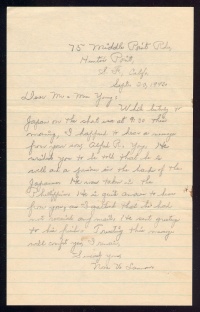 75 Middle Point Rd.,
Hunters Point,
S. F., Calif.
Sept. 23, 1942
Dear Mr. & Mrs. Young:
While listening to
Japan on the short wave at 8:30 this
morning, I happened to hear a message
from your son, Alfred R. Young. He
wished you to be told that he is
well and a prisoner in the hands of the
Japanese. He was taken in the
Philippines. He is quite anxious to hear
from you, and
He sent greetings
to his friends. Trusting this message
will reach you soon,
I remain yours